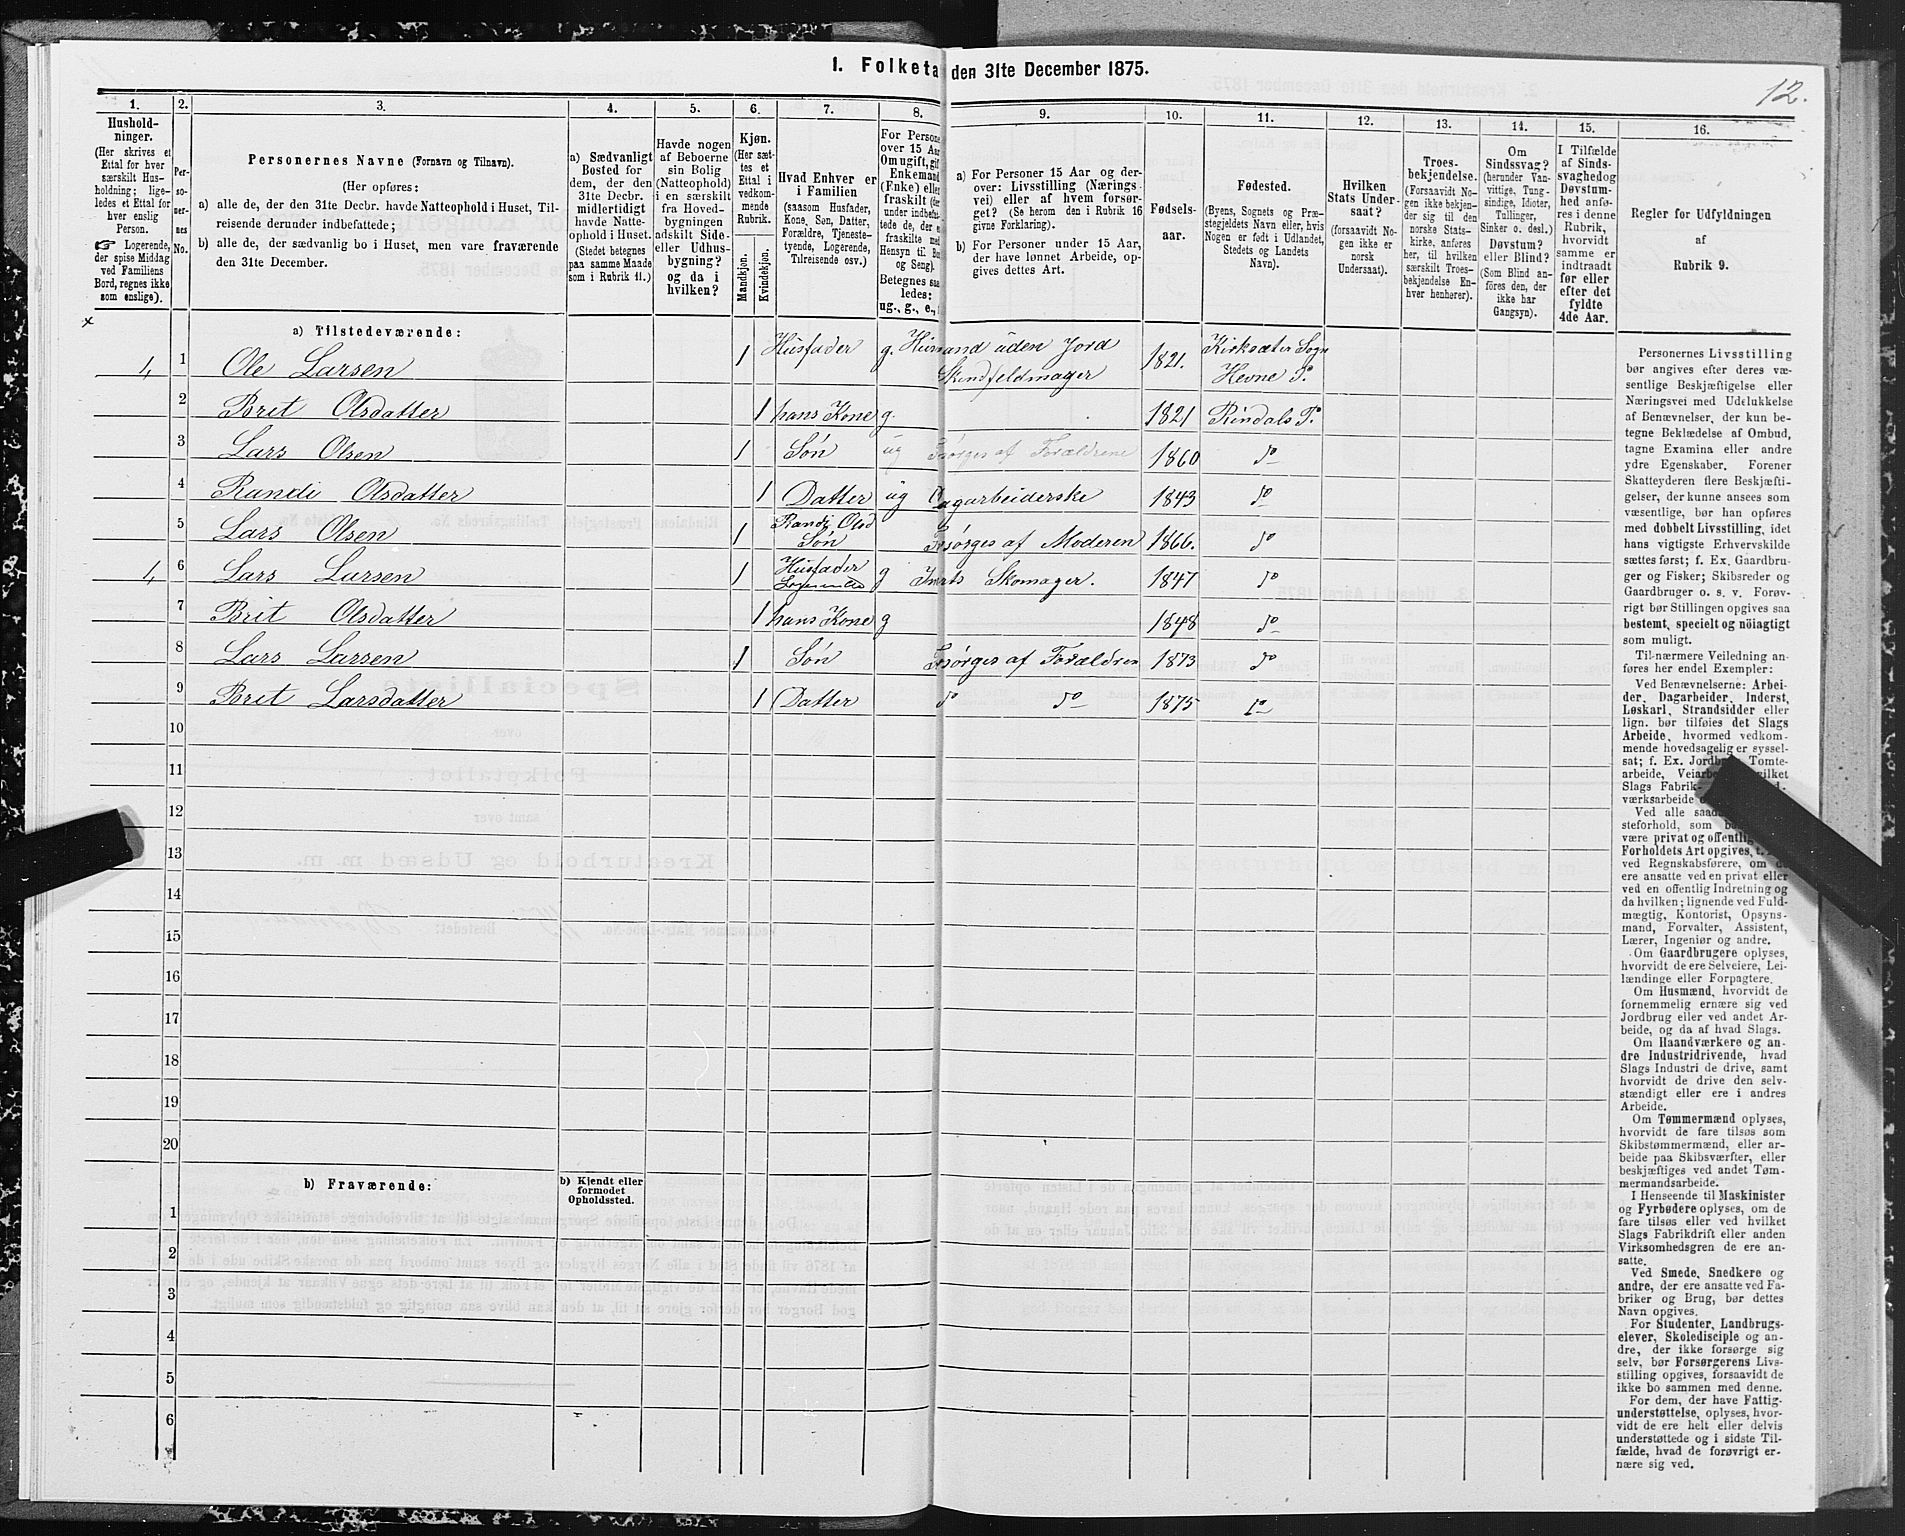 1. Folketa den 31te December 1875.
12.
1. 2. 3. 4. 5. 6. 7. 8. 9. 10. 11. 12. 13. 14. 15. 16.
Hushold-
ninger.
(Her skrives et
Ettal for hver
særskilt Hus-
holdning; lige-
ledes et Ettal for
hver enslig
Person.
☞ Logerende,
der spise Middag
ved Familiens
Bord, regnes ikke
som enslige).
Per-
so-
ner-
nes
No.
Personernes Navne (Fornavn og Tilnavn).
(Her opføres:
a) alle de, der den 31te Decbr. havde Natteophold i Huset, Til-
reisende derunder indbefattede;
b) alle de, der sædvanlig bo i Huset, men vare fraværende
den 31te December.
a) Sædvanligt
Bosted for
dem, der den
31te Decbr.
midlertidigt
havde Natte-
ophold i Huset.
(Stedet betegnes
paa samme Maade
som i Rubrik 11.)
Havde nogen
af Beboerne
sin Bolig
(Natteophold)
i en særskilt
fra Hoved-
bygningen
adskilt Side-
eller Udhus-
bygning?
og da i
hvilken?
Kjøn.
(Her sæt-
tes et
Ettal i
vedkom-
mende
Rubrik.
Mandkjøn.
Kvindekjøn.
Hvad Enhver er
i Familien
(saasom Husfader,
Kone, Søn, Datter,
Forældre, Tjeneste-
tyende, Logerende,
Tilreisende osv.)
For Persone
over 15 Aar
Om ugift, gif
Enkemand
(Enke) elle
fraskilt (for
under indbefat-
tede de, der e
fraskilte med
Hensyn til Bo
og Seng).
Betegnes saa
ledes:
ug., g., e.,
a) For Personer 15 Aar og der-
over: Livsstilling (Nærings-
vei) eller af hvem forsør-
get? (Se herom den i Rubrik 16
givne Forklaring).
b) For Personer under 15 Aar,
der have lønnet Arbeide, op-
gives dettes Art.
Fødsels-
aar.
Fødested.
(Byens, Sognets og Præ-
stegjeldets Navn eller, hvis
Nogen er født i Udlandet,
Stedets og Landets
Navn).
Hvilken
Stats Under-
saat?
(forsaavidt No-
gen ikke er
norsk
Undersaat).
Troes-
bekjendelse.
(Forsaavidt No-
gen ikke bekjen-
der sig til den
norske Stats-
kirke, anføres
her, til hvilken
særskilt Troes-
bekjendelse En-
hver henhører).
Om
Sindssvag?
(herunder Van-
vittige, Tung-
sindige, Idioter,
Tullinger,
Sinker o. desl.)
Døvstum?
eller Blind?
(Som Blind an-
føres den, der
ikke har
Gangsyn).
I Tilfælde
af Sinds-
svaghedog
Døvstum-
hed anfø-
res i denne
Rubrik,
hvorvidt
samme er
indtraadt
før eller
efter det
fyldte
4de Aar.
Regler for Udfyldningen
af
Rubrik 9.
a) Tilstedeværende:
1 1 Ole Larsen 1 Husfader g. Husmand uden Jord 1821. Kirksæter Sogn
Skindfeldmager Hevne P.
2 Brit Olsdatter 1 hans Kone g. 1821 Rindals P.
3 Lars Olsen 1 Søn ug Fsørges af Forældrene 1860 do
4 Randi Olsdatter 1 Datter ug Dagarbeiderske 1843 do
5 Lars Olsen 1 Randi Olsd Søn Fsørges af Moderen 1866. do
1 6 Lars Larsen 1 Husfader g Inderst Skomager. 1847 do
7 Brit Olsdatter 1 hans Kone g 1848 do
8 Lars Larsen 1 Søn Fsørges af Forældren 1873 do
9 Brit Larsdatter 1 Datter do do 1875 do
10
11
12
13
14
15
16
17
18
19
20
b) Fraværende:
b) Kjendt eller
formodet
Opholdssted.
1
2
3
4
5
6
Personernes Livsstilling
bør angives efter deres væ-
sentlige Beskjæftigelse eller
Næringsvei med Udelukkelse
af Benævnelser, der kun be-
tegne Beklædelse af Ombud,
tagne Examina eller andre
ydre Egenskaber. Forener
Skatteyderen flere Beskjæfti-
gelser, der kunne ansees som
væsentlige, bør han opføres
med dobbelt Livsstilling, idet
hans vigtigste Erhvervskilde
sættes først; f. Ex. Gaardbru-
ger og Fisker; Skibsreder og
Gaardbruger o. s. v. Forøv-
rigt bør Stillingen opgives saa
bestemt, specielt og nøiagtigt
som muligt.
Til nærmere Veiledning an-
føres her endel Exempler:
Ved Benævnelserne: Arbei-
der, Dagarbeider, Inderst,
Løskarl, Strandsidder eller
lign. bør tilføies det Slags
Arbeide, hvormed vedkom-
mende hovedsagelig er syssel-
sat; f. Ex. Jordbr Tomte-
arbeide, Veiarbe vilket
Slags Fabrik-
værksarbeide
Ved alle saad
steforhold, som
være privat og offentlig
Forholdets Art opgives,
ved Regnskabsførere, om
ere ansatte ved en privat eller
ved en offentlig Indretning og
da hvilken; lignende ved Fuld-
mægtig, Kontorist, Opsyns-
mand, Forvalter, Assistent,
Lærer, Ingeniør og andre.
Om Gaardbrugere oplyses,
hvorvidt de ere Selveiere, Lei-
lændinge eller Forpagtere.
Om Husmænd, hvorvidt de
fornemmelig ernære sig ved
Jordbrug eller ved andet Ar-
beide, og da af hvad Slags.
Om Haandværkere og an-
dre Industridrivende, hvad
Slags Industri de drive, samt
hvorvidt de drive den selv-
stændigt eller ere i andres
Arbeide.
Om Tømmermænd oplyses,
hvorvidt de fare tilsøs som
Skibstømmermænd, eller ar-
beide paa Skibsværfter, eller
beskjæftiges ved andet Tøm-
mermandsarbeide.
I Henseende til Maskinister
og Fyrbødere oplyses, om de
fare tilsøs eller ved hvilket
Slags Fabrikdrift eller anden
Virksomhedsgren de ere an-
satte.
Ved Smede, Snedkere og
andre, der ere ansatte ved Fa-
briker og Brug, bør dettes
Navn opgives.
For Studenter, Landbrugs-
elever, Skoledisciple og an-
dre, der ikke forsørge sig
selv, bør Forsørgerens Livs-
stilling opgives, forsaavidt de
ikke bo sammen med denne.
For dem, der have Fattig-
understøttelse, oplyses, hvor-
vidt de ere helt eller delvis
understøttede og i sidste Til-
fælde, hvad de forøvrigt er-
nære sig ved.